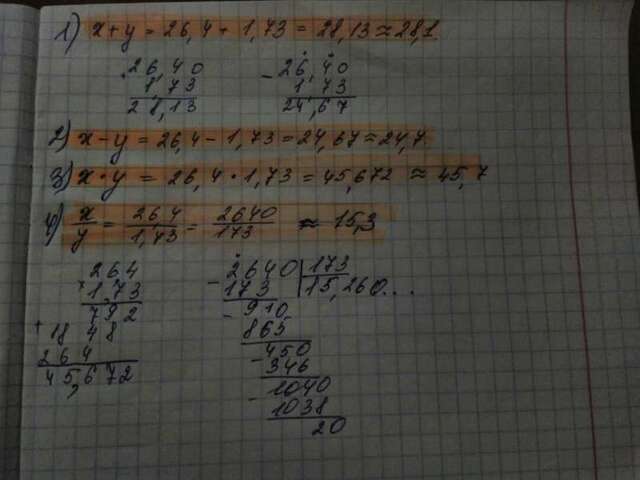 1) x+y = 26,4 + 1,73 = 28,13 ≈ 28,1
26,40
1,73
28,13
- 26,40
1,73
24,67
2) x-y = 26,4 - 1,73 = 24,67 ≈ 24,7
3) x·y = 26,4 · 1,73 = 45,672 ≈ 45,7
4) x/y = 264/1,73 = 2640/173 ≈ 15,3
264
1,73
792
+ 1848
264
45,672
- 2640 | 173
173 | 15,260...
- 910
865
- 450
346
- 1040
1038
20